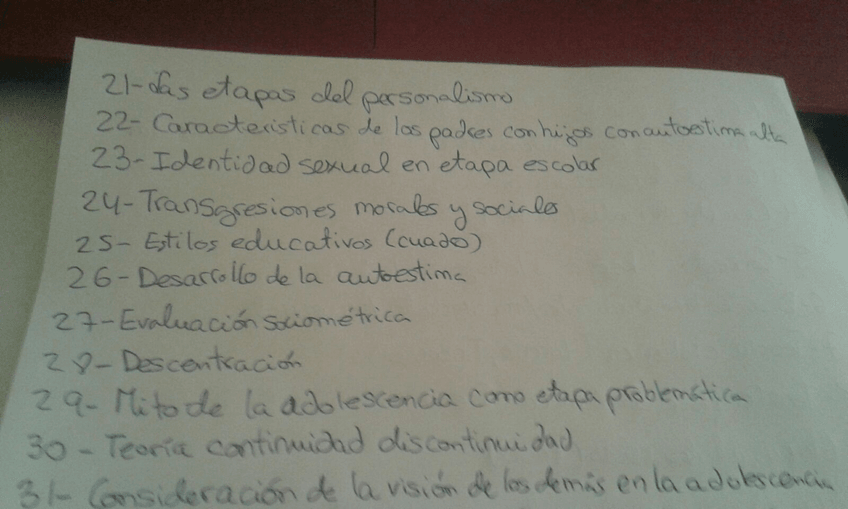 21-Las etapas del personalismo
22- Características de los padres con hijos con autoestima alta
23-Identidad sexual en etapa escolar
24-Transgresiones morales y sociales
25- Estilos educativos (cuado)
26-Desarrollo de la autoestima
27-Evaluación sociométrica
28-Descentración
29- Mito de la adolescencia como etapa problemática
30-Teoría continuidad discontinuidad
31- Consideración de la visión de los demás en la adolescencia